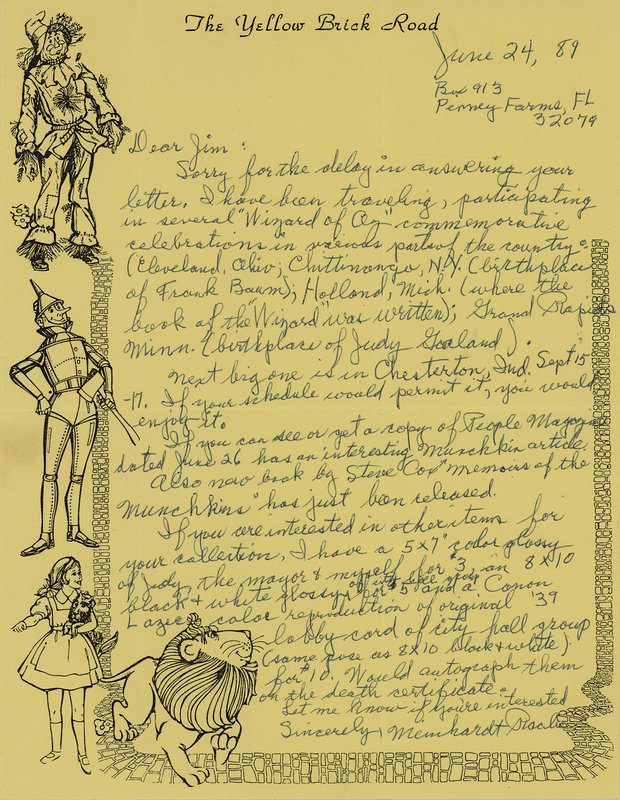 The Yellow Brick Road
June 24, 89
Box 913
Penney Farms, FL
32079
Dear Jim:
Sorry for the delay in answering your
letter. I have been traveling, participating
in several "Wizard of Oz" commemorative
celebrations in various parts of the country.
(Cleveland, Ohio; Chittinango, N.Y. (birthplace
of Frank Baum); Holland, Mich. (where the
book of the "Wizard" was written); Grand Rapids
Minn. (birthplace of Judy Garland).
Next big one is in Chesterton, Ind. Sept 15
-17. If your schedule would permit it, you would
enjoy it.
If you can see or get a copy of People Magazine
dated June 26 has an interesting Munchkin article.
Also new book by Steve Cox "Memoirs of the
Munchkins" has just been released.
If you are interested in other items for
your collection, I have a 5x7" color glossy
of Judy, the mayor & myself, for $3, an 8x10
black & white glossy of city hall group for $5 and a Canon
Lazer color reproduction of original '39
lobby card of city hall group
(same pose as 8x10 black & white)
for $10. Would autograph them
on the death certificate.
Let me know if you're interested
Sincerely, Meinhardt Raabe